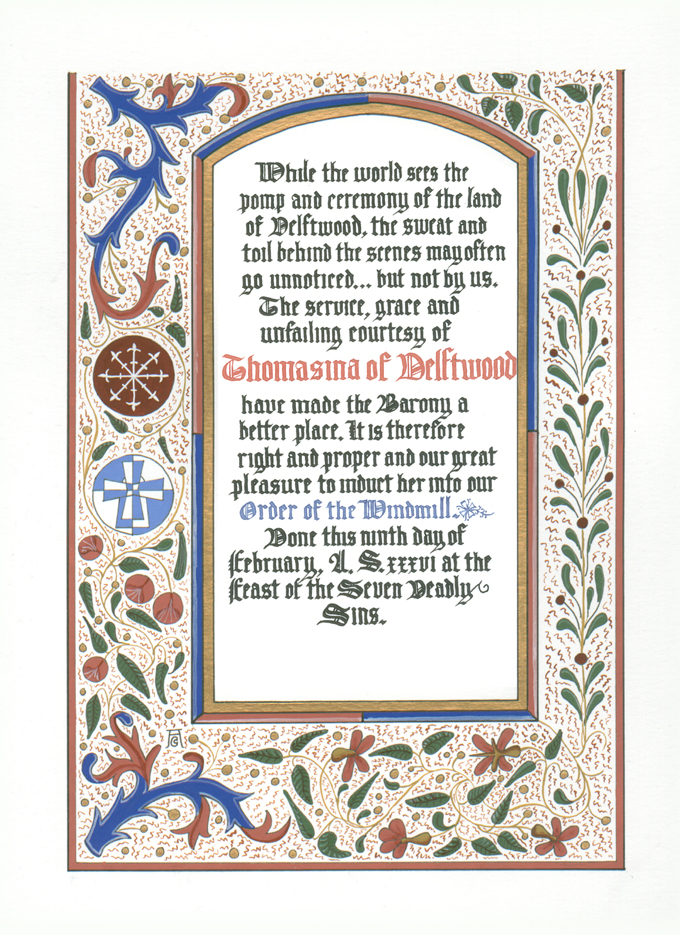 While the world sees the
pomp and ceremony of the land
of Delftwood, the sweat and
toil behind the scenes may often
go unnoticed... but not by us.
The service, grace and
unfailing courtesy of
Thomasina of Delftwood
have made the Barony a
better place. It is therefore
right and proper and our great
pleasure to induct her into our
Order of the Windmill.
Done this ninth day of
February, A. S. xxxvi at the
Feast of the Seven Deadly
Sins.